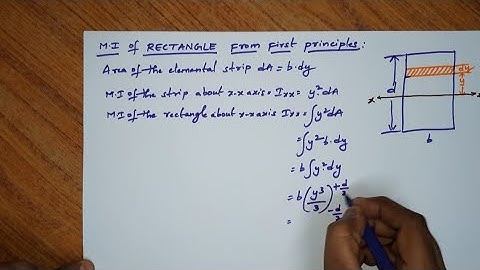 M.I of RECTANGLE From First principles:
Area of the elemental strip dA = b·dy
M.I of the strip about x-x axis = Ixx = y².dA
M.I of the rectangle about x-x axis Ixx = ∫y²dA
= ∫y²·b·dy
= b∫y²·dy
= b(y³/3)+d/2 -d/2
=
d
dy
y
x
x
b